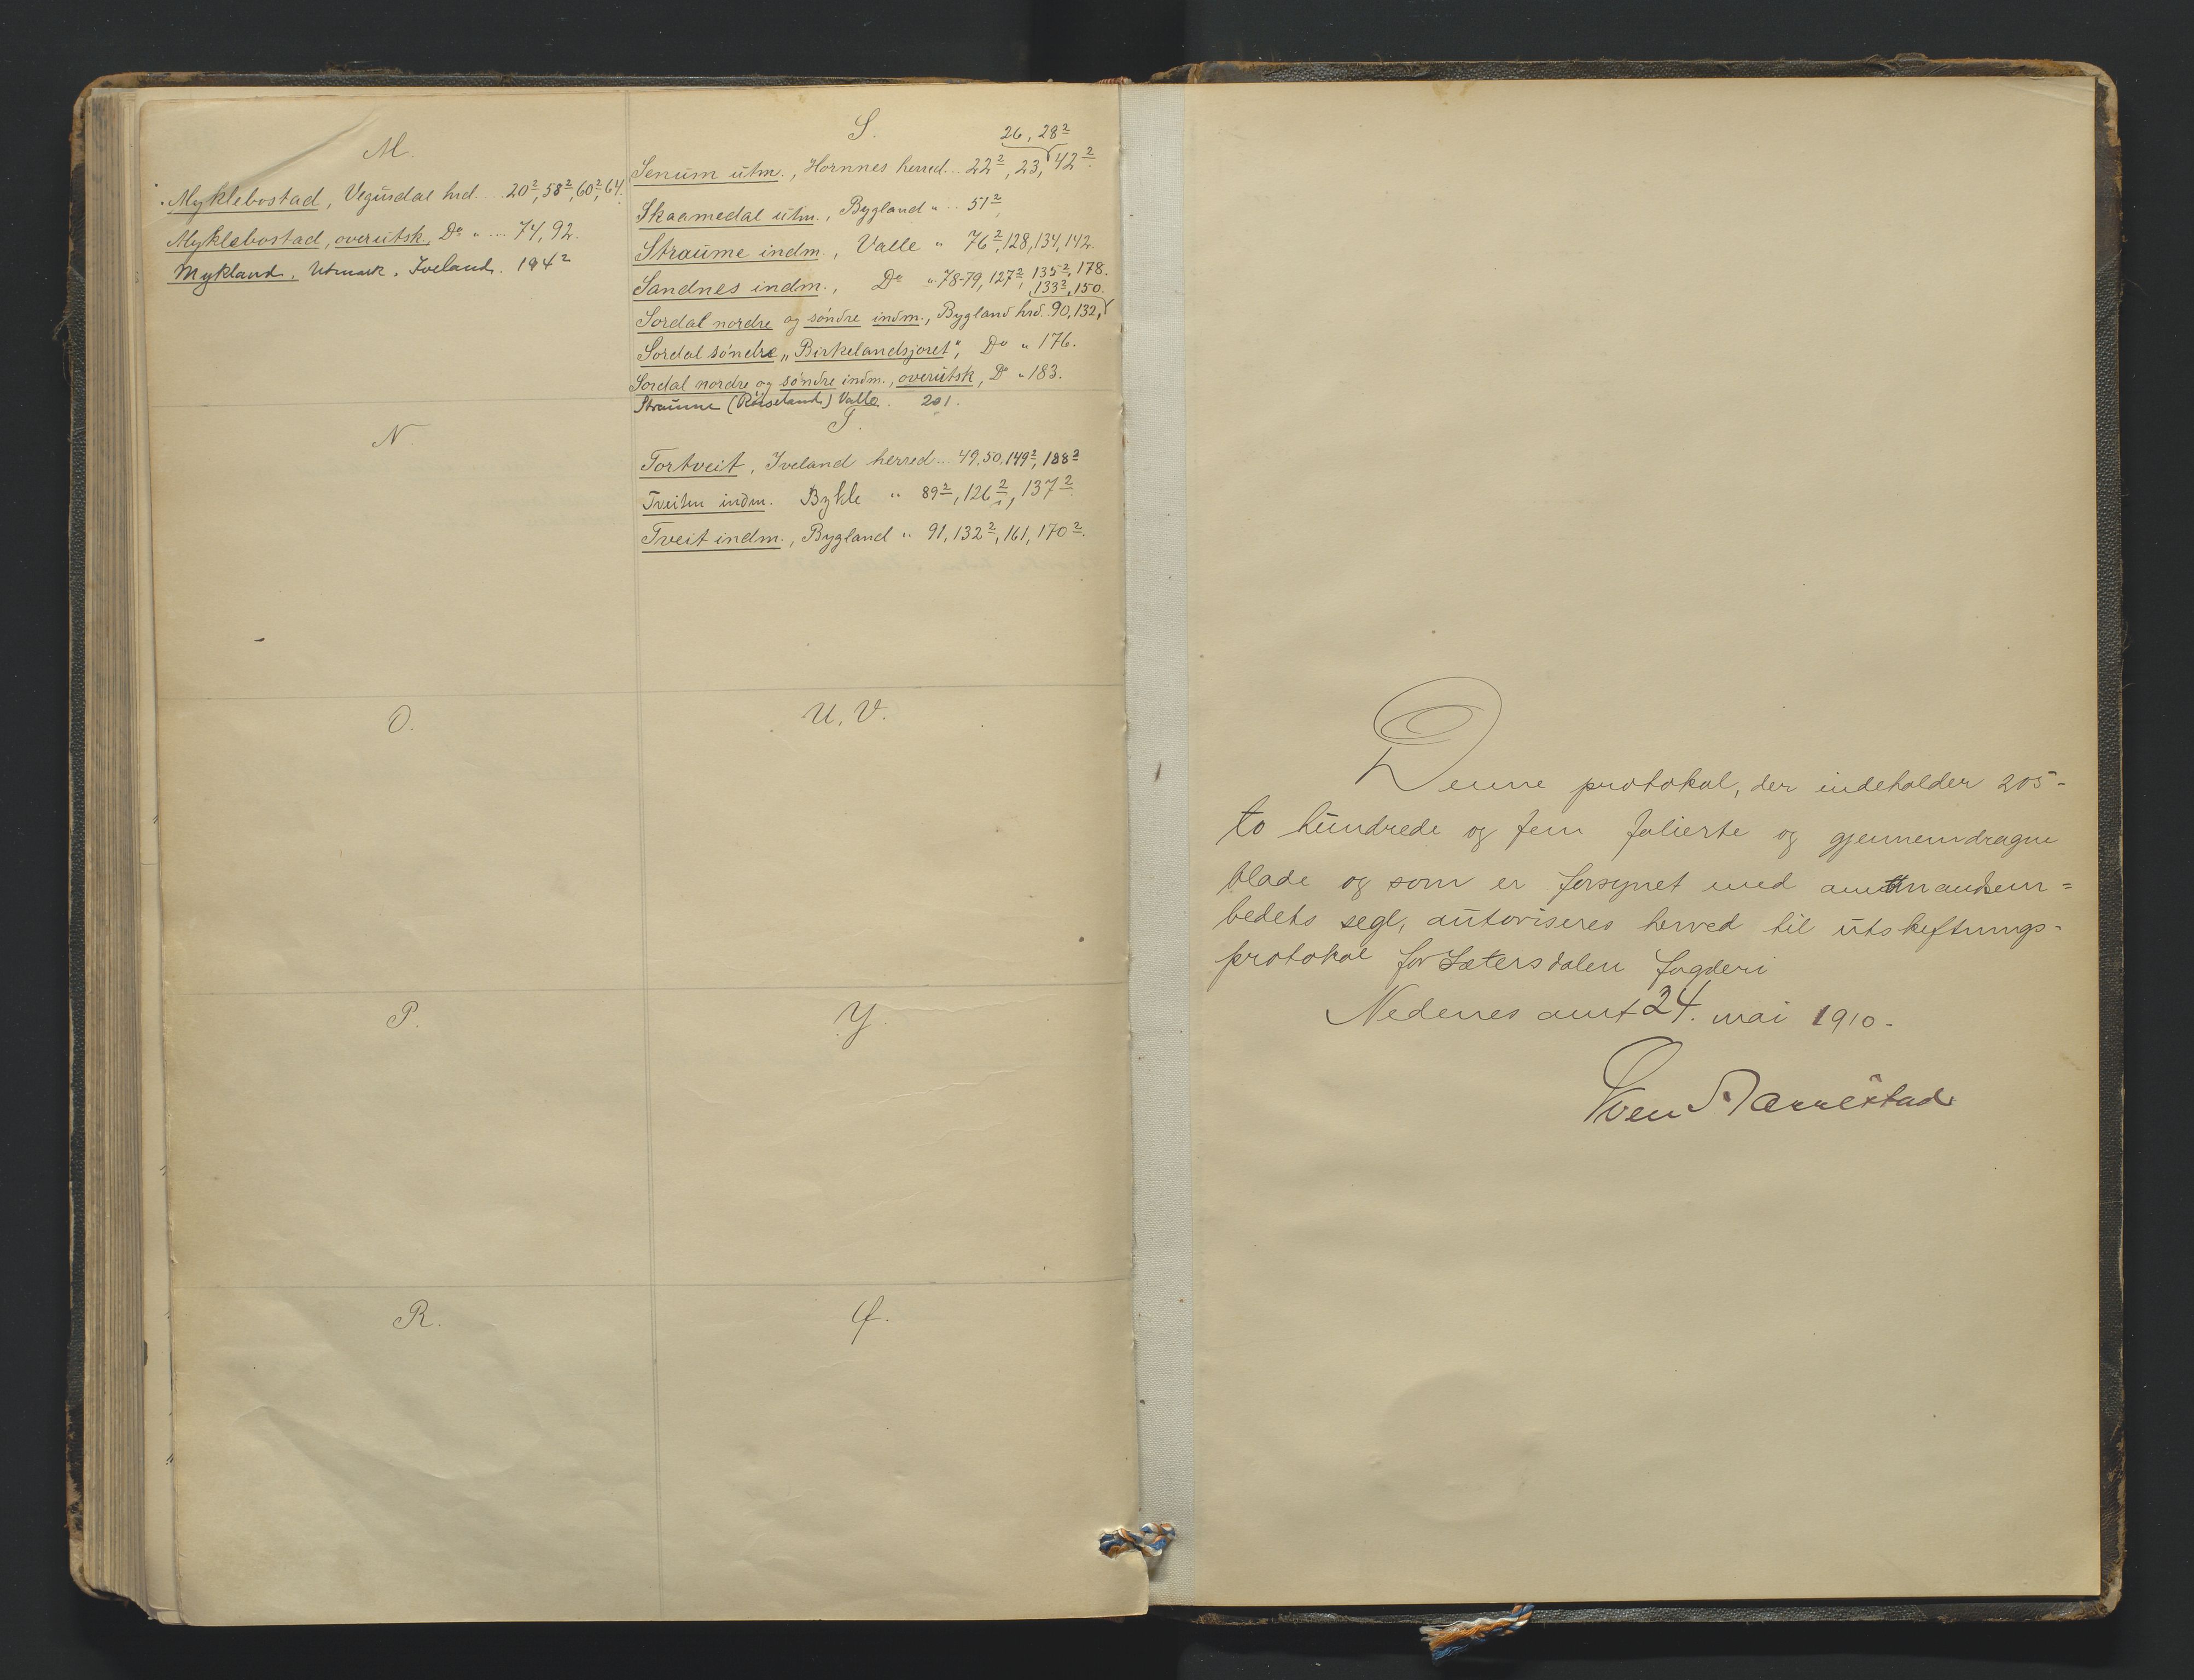 M.
Myklebostad, Vegusdal hrd. ... 20², 58², 60², 64.
Myklebostad, overutsk., Do " ... 74, 92.
Mykland. Utmark. Iveland. 194²
N.
O.
P.
R.
S.
26, 28²
Senum utm., Hornnes herred... 22², 23, 42².
Skaamedal utm., Bygland " ... 51²
Straume indm., Valle " 76², 128, 134, 142.
Sandnes indm., Do " 78-79, 127², 135², 178.
133², 150.
Sordal nordre og søndre indm., Bygland hrd. 90, 132,
Sordal søndre „Birkelandsjoret", Do " 176.
Sordal nordre og søndre indm., overutsk, Do " 183.
Straume (Røiseland) Valle. 201.
T.
Tortveit, Iveland herred... 49, 50, 149², 188²
Tveiten indm. Bykle " 89², 126², 137².
Tveit indm., Bygland " 91, 132², 161, 170².
U, V.
Y.
Ø.
Denne protokol, der indeholder 205-
to hundrede og fem folierte og gjennemdragne
blade og som er forsynet med amtmandsem=
bedets segl, autoriseres herved til utskiftnings-
protokol for Sætersdalen fogderi
Nedenes amt 24. mai 1910.
Sven Aarrestad